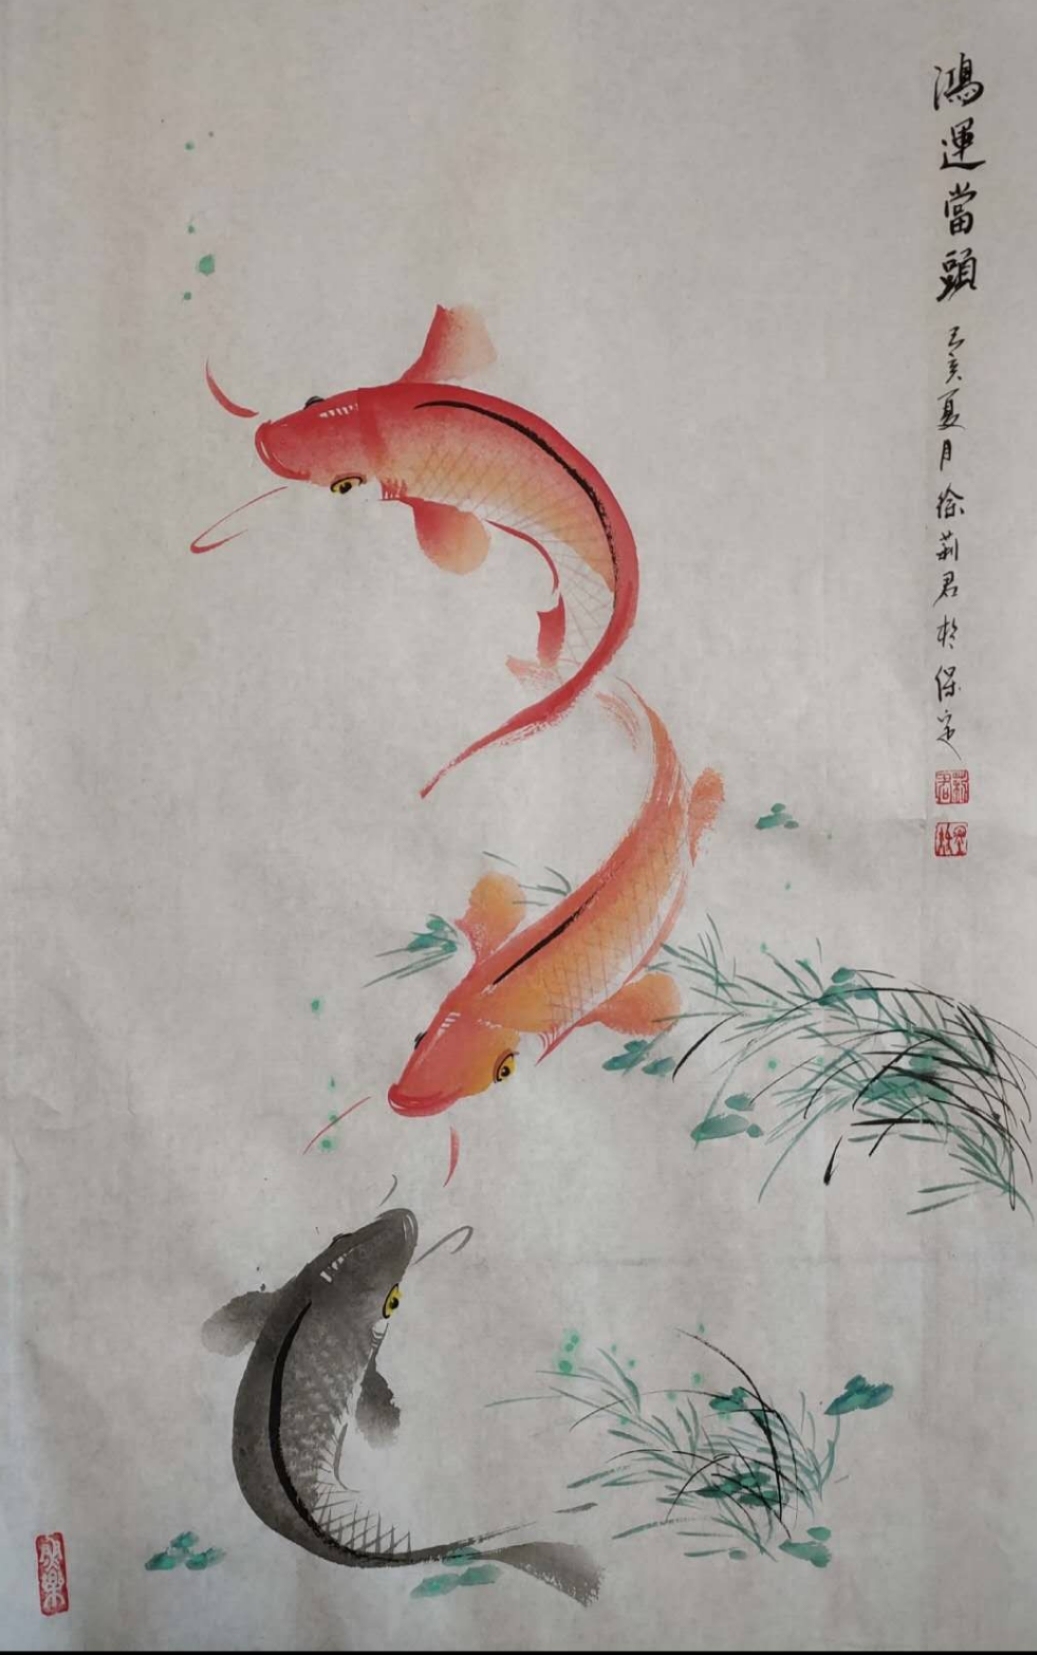 鴻運當頭
己亥夏月徐莉君於保定